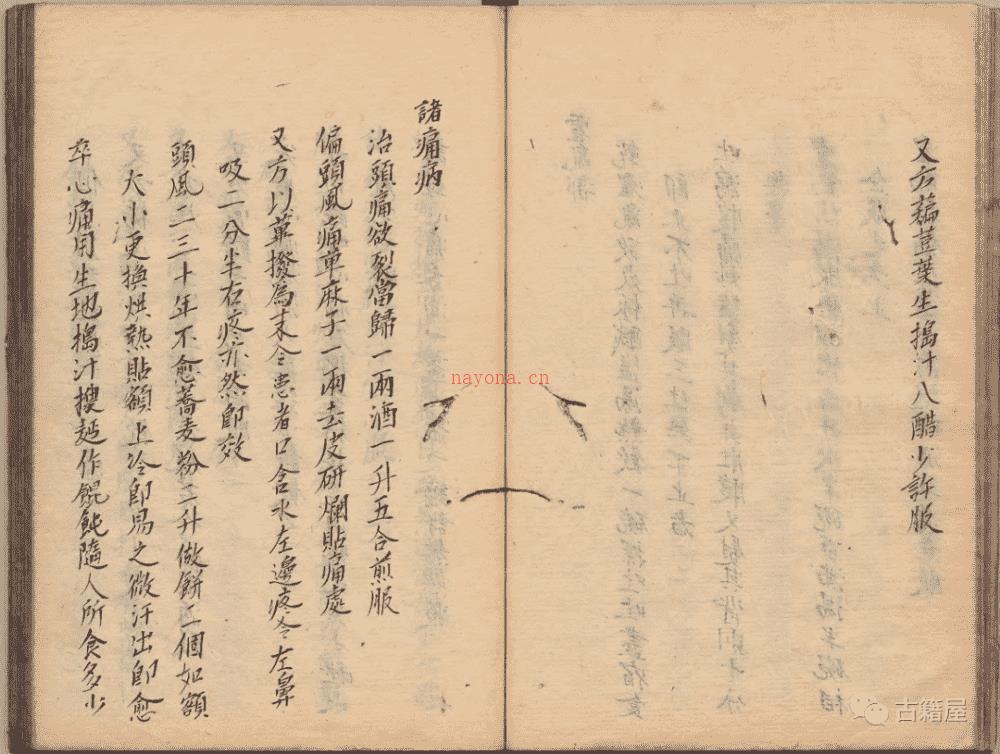 又方藊荳葉生搗汁入醋少許服
諸痛病
治頭痛欲裂當歸一兩酒一升五合煎服
偏頭風痛萆麻子一兩去皮研爛貼痛處
又方以蓽撥為末令患者口含水左邊疼令左鼻
吸二分半右疼亦然即效
頭風二三十年不愈蕎麦粉二升做餅二個如額
大小更換烘熱貼額上冷即易之微汗出即愈
卒心痛用生地搗汁搜麵作餛飩隨人所食多少
nayona.cn
古籍屋